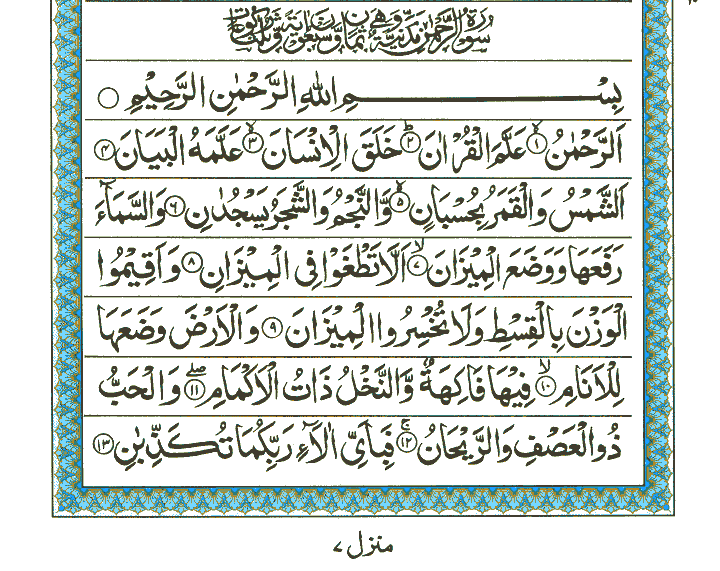 سورة الرحمن مدنية وهي ثمان وسبعون اية وثلث ركوعات
بِسْمِ اللهِ الرَّحْمٰنِ الرَّحِيْمِ ○
اَلرَّحْمٰنُ ۙ﴿۱﴾ عَلَّمَ الْقُرْاٰنَ ؕ﴿۲﴾ خَلَقَ الْاِنْسَانَ ۙ﴿۳﴾ عَلَّمَهُ الْبَيَانَ ﴿۴﴾
اَلشَّمْسُ وَالْقَمَرُ بِحُسْبَانٍ ۙ﴿۵﴾ وَّالنَّجْمُ وَالشَّجَرُ يَسْجُدٰنِ ﴿۶﴾ وَالسَّمَآءَ
رَفَعَهَا وَوَضَعَ الْمِيْزَانَ ۙ﴿۷﴾ اَلَّا تَطْغَوْا فِى الْمِيْزَانِ ﴿۸﴾ وَاَقِيْمُوا
الْوَزْنَ بِالْقِسْطِ وَلَا تُخْسِرُوا الْمِيْزَانَ ﴿۹﴾ وَالْاَرْضَ وَضَعَهَا
لِلْاَنَامِ ۙ﴿۱۰﴾ فِيْهَا فَاكِهَةٌ وَّالنَّخْلُ ذَاتُ الْاَكْمَامِ ۖ﴿۱۱﴾ وَالْحَبُّ
ذُو الْعَصْفِ وَالرَّيْحَانُ ۚ﴿۱۲﴾ فَبِاَىِّ اٰلَآءِ رَبِّكُمَا تُكَذِّبٰنِ ﴿۱۳﴾
منزل ۷